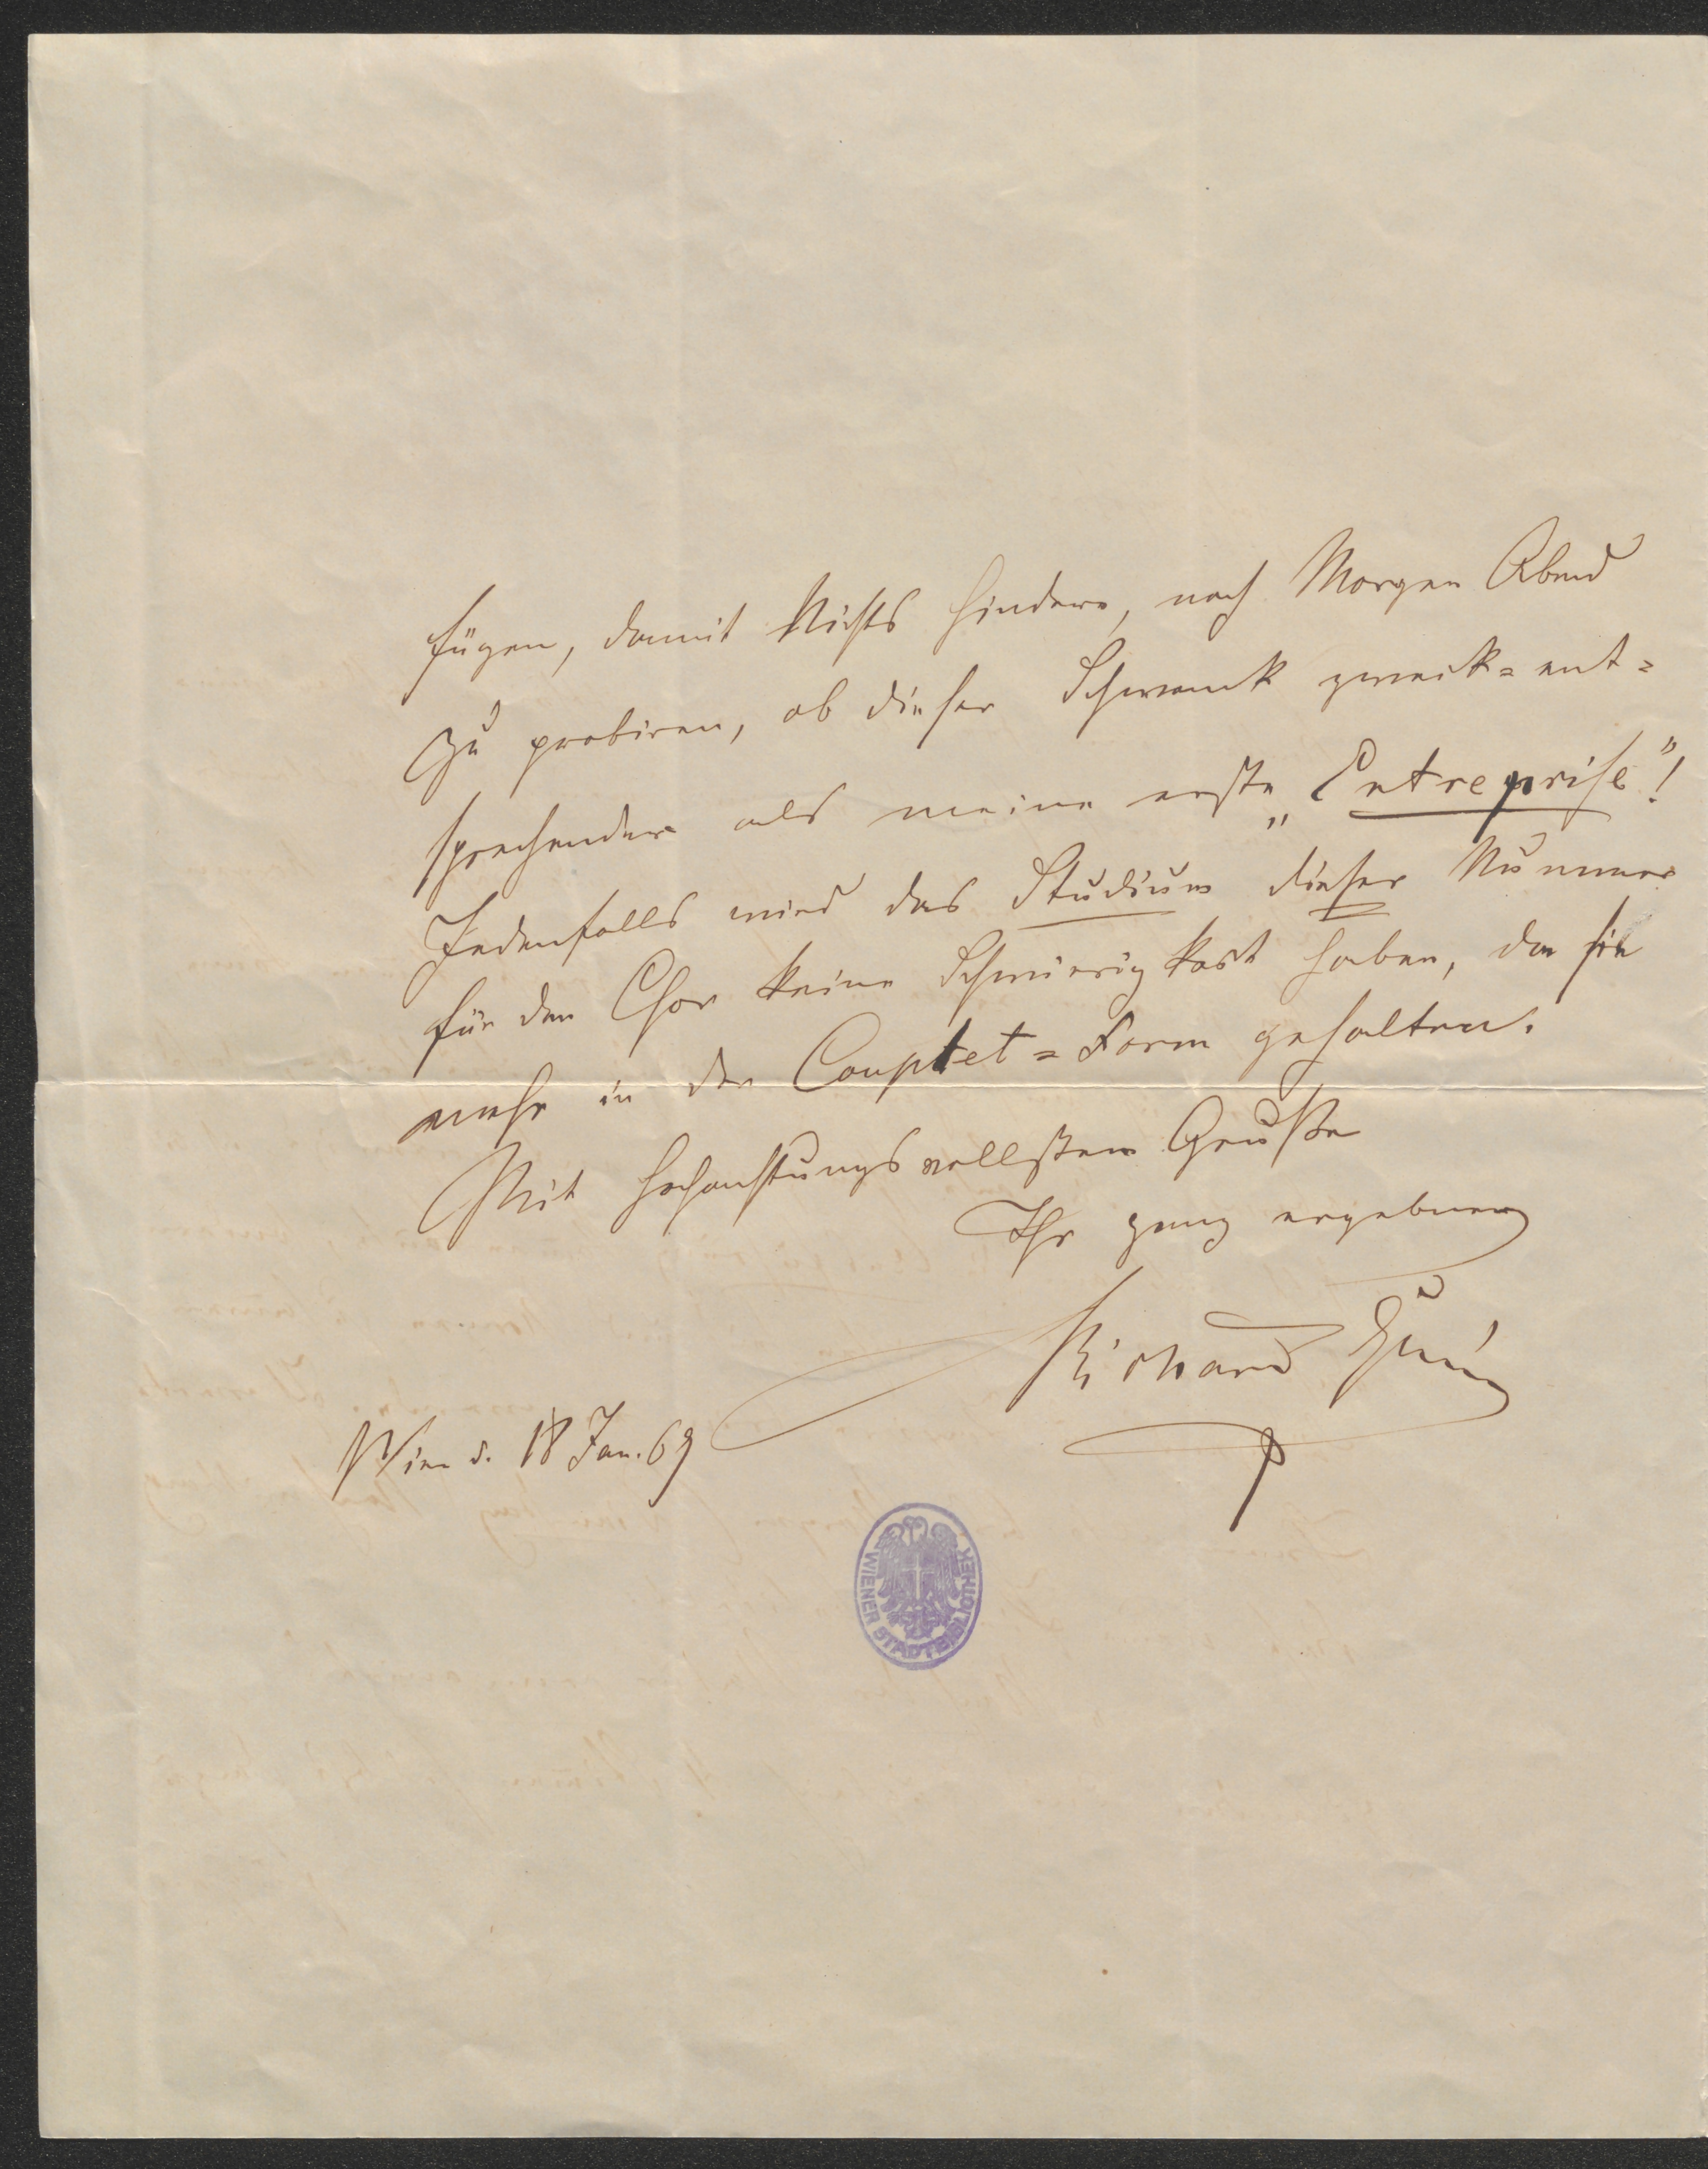 fügen, damit Nichts hindere, noch Morgen Abend
zu probiren, ob dieser Schwank zweck=ent=
sprechender als meine erste „Entreprise"!
Jedenfalls wird das Studium dieser Nummer
für den Chor keine Schwierigkeit haben, da sie
mehr in der Couplet=Form gehalten.
Mit hochachtungsvollstem Gruße
Ihr ganz ergebener
Richard Genée
Wien d. 18 Jan. 69
WIENER STADTBIBLIOTHEK